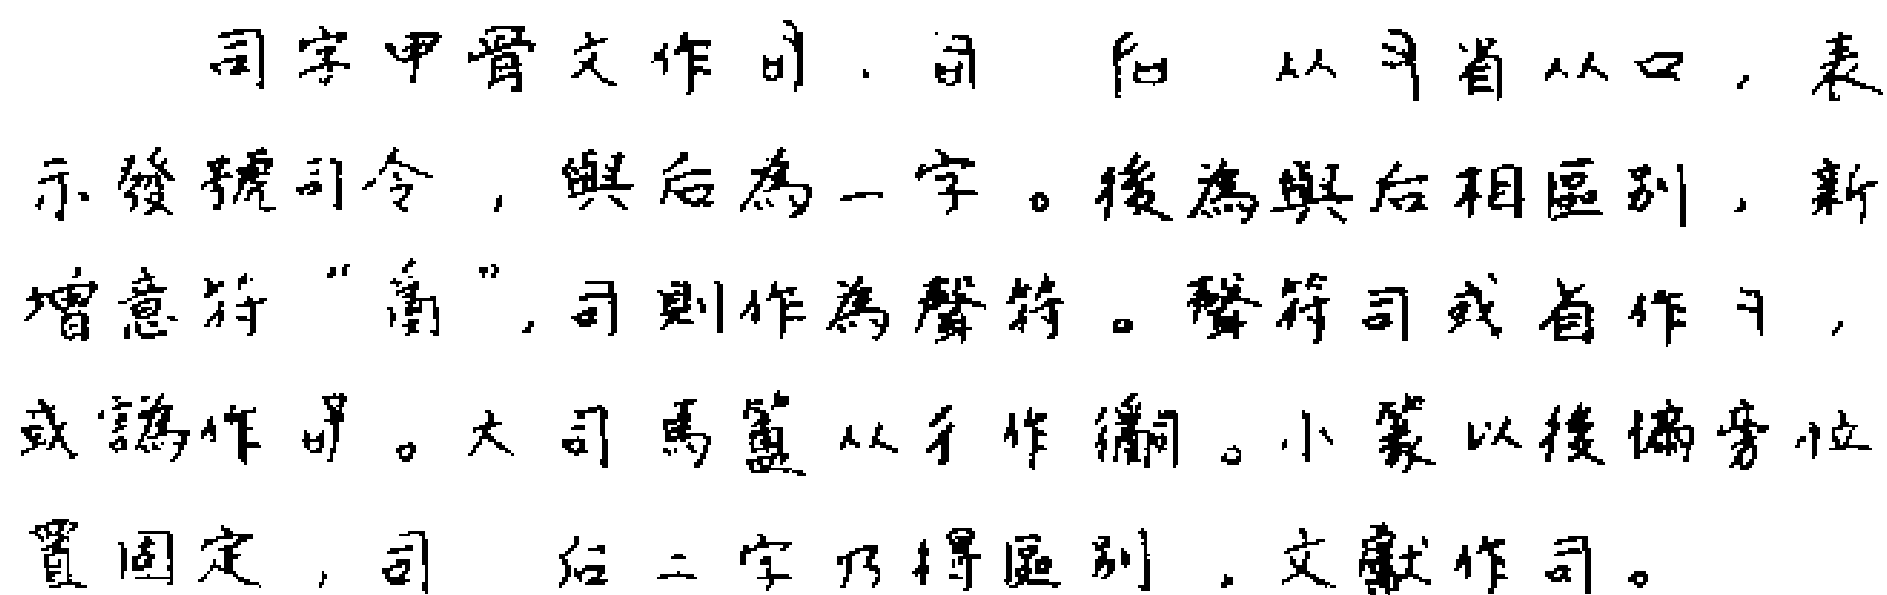 司字甲骨文作司、司 后 从 省从口，表
示發號司令，與后為一字。後為與后相區別，新
增意符“𤔔”，司則作為聲符。聲符司或省作㇆，
或譌作 。大司馬簠从彳作 。小篆以後偏旁位
置固定，司 后二字乃得區別，文獻作司。